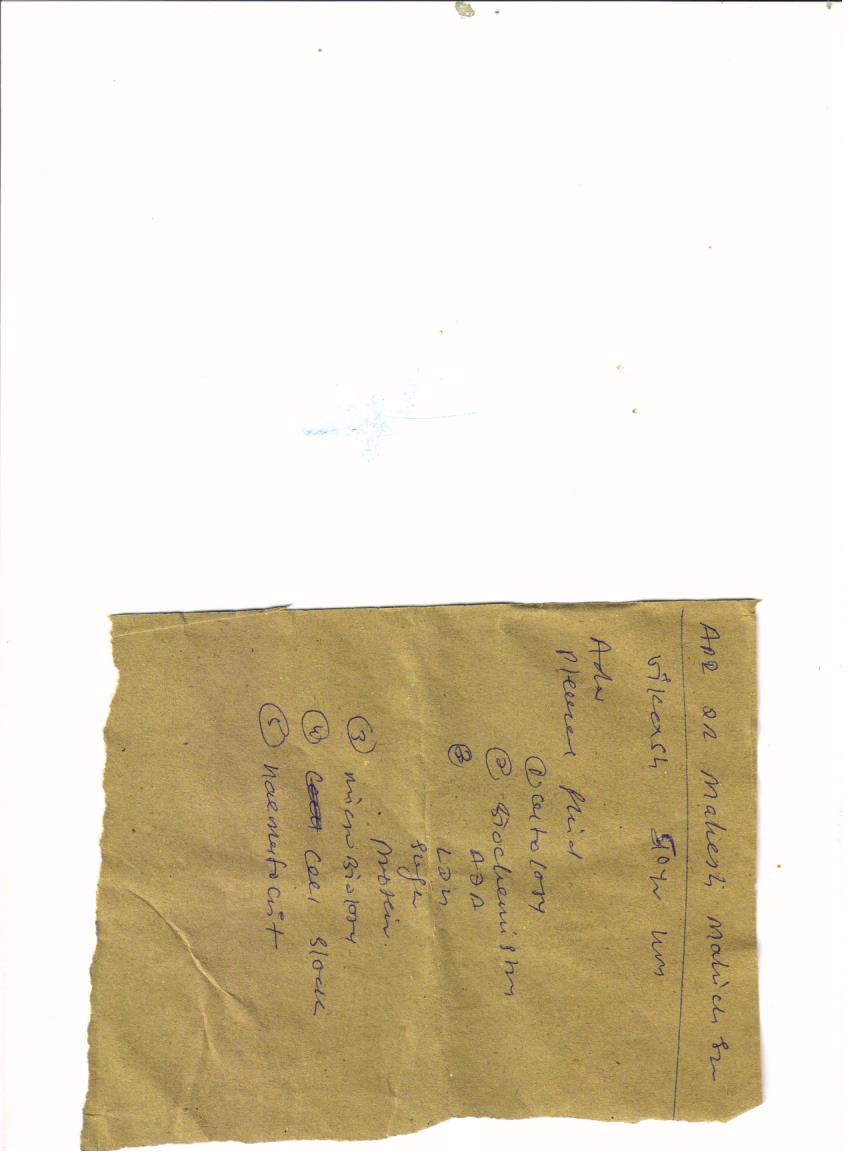 Mahesh
Vikash 50yr
Adv
Pleural fluid
① Cytology
② Biochemistry
ADA
③ LDH
Sugar
Protein.
③ microbiology
④ Cell Block
⑤ haematocrit